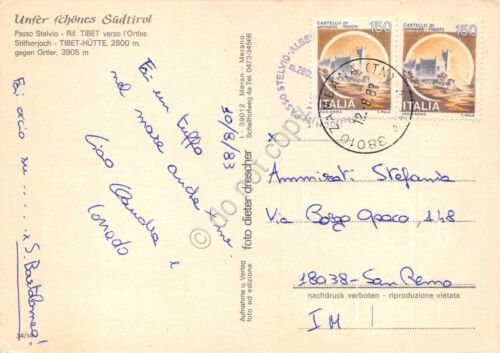 Unser schönes Südtirol
Passo Stelvio - Rif. TIBET verso l'Ortles
Stilfserjoch - TIBET-HÜTTE, 2800 m.
gegen Ortler, 3905 m
Fai ciao su ..... x S. Bartolomeo!
30/8/83
Fai un tuffo
nel mare anche x me
Ciao Claudia e
Corrado
34/34
I - 39012 Meran - Merano
Schallhofweg 4a Tel. 0473-34566
foto dieter drescher
Aufnahme u. Verlag
foto ed edizione
© do not copy
PASSO STELVIO-ALBE
CASTELLO DI
MIRAMARE - TRIESTE
150
ITALIA
CASTELLO DI
MIRAMARE - TRIESTE
150
ITALIA
38010 ZAMBANA (TN)
x
Ammirati Stefania
Via Borgo Opaco, 148
18038 - San Remo
nachdruck verboten - riproduzione vietata
IM